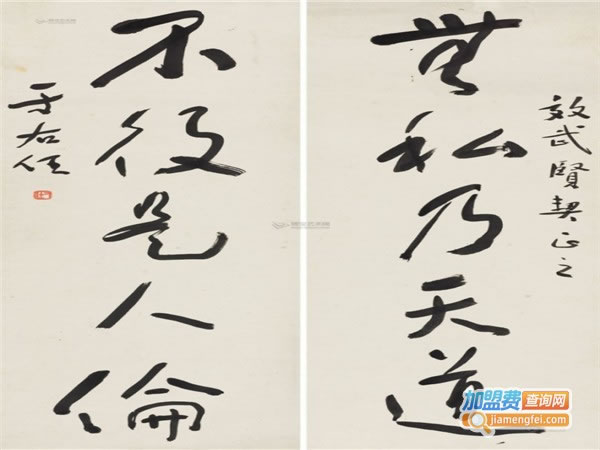 效武賢契正之
無私乃天道
不役是人倫
于右任
加盟费查询网
jiamengfei.com